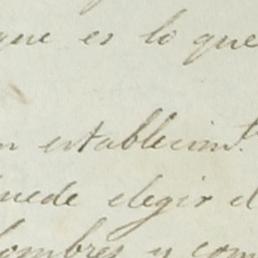 que es lo que
n establecim.t
puede elegir d
hombres y com